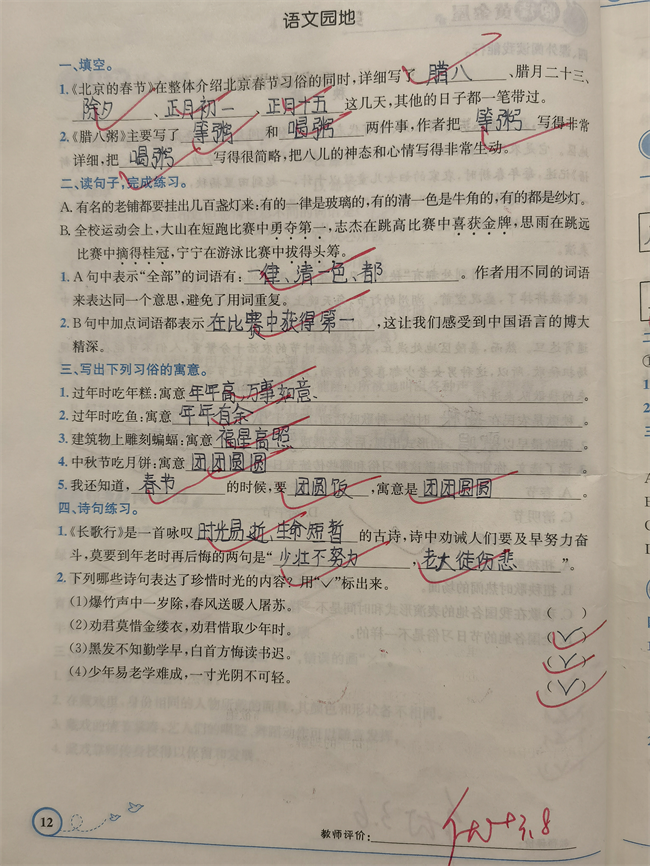 语文园地
一、填空。
1.《北京的春节》在整体介绍北京春节习俗的同时,详细写了 腊八 、腊月二十三、
除夕 、正月初一 、正月十五 这几天,其他的日子都一笔带过。
2.《腊八粥》主要写了 等粥 和 喝粥 两件事,作者把 等粥 写得非常
详细,把 喝粥 写得很简略,把八儿的神态和心情写得非常生动。
二、读句子,完成练习。
A. 有名的老铺都要挂出几百盏灯来:有的一律是玻璃的,有的清一色是牛角的,有的都是纱灯。
B. 全校运动会上,大山在短跑比赛中勇夺第一,志杰在跳高比赛中喜获金牌,思雨在跳远
比赛中摘得桂冠,宁宁在游泳比赛中拔得头筹。
1. A 句中表示“全部”的词语有: 一律、清一色、都 。作者用不同的词语
来表达同一个意思,避免了用词重复。
2. B 句中加点词语都表示 在比赛中获得第一 ,这让我们感受到中国语言的博大
精深。
三、写出下列习俗的寓意。
1. 过年时吃年糕:寓意 年年高、万事如意、 。
2. 过年时吃鱼:寓意 年年有余 。
3. 建筑物上雕刻蝙蝠:寓意 福星高照 。
4. 中秋节吃月饼:寓意 团团圆圆 。
5. 我还知道, 春节 的时候,要 团圆饭 ,寓意是 团团圆圆 。
四、诗句练习。
1.《长歌行》是一首咏叹 时光易逝、生命短暂 的古诗,诗中劝诫人们要及早努力奋
斗,莫要到年老时再后悔的两句是“ 少壮不努力 , 老大徒伤悲 ”。
2. 下列哪些诗句表达了珍惜时光的内容?用“✓”标出来。
(1)爆竹声中一岁除,春风送暖入屠苏。 ( )
(2)劝君莫惜金缕衣,劝君惜取少年时。 (✓)
(3)黑发不知勤学早,白首方悔读书迟。 (✓)
(4)少年易老学难成,一寸光阴不可轻。 (✓)
12
教师评价:
3.8